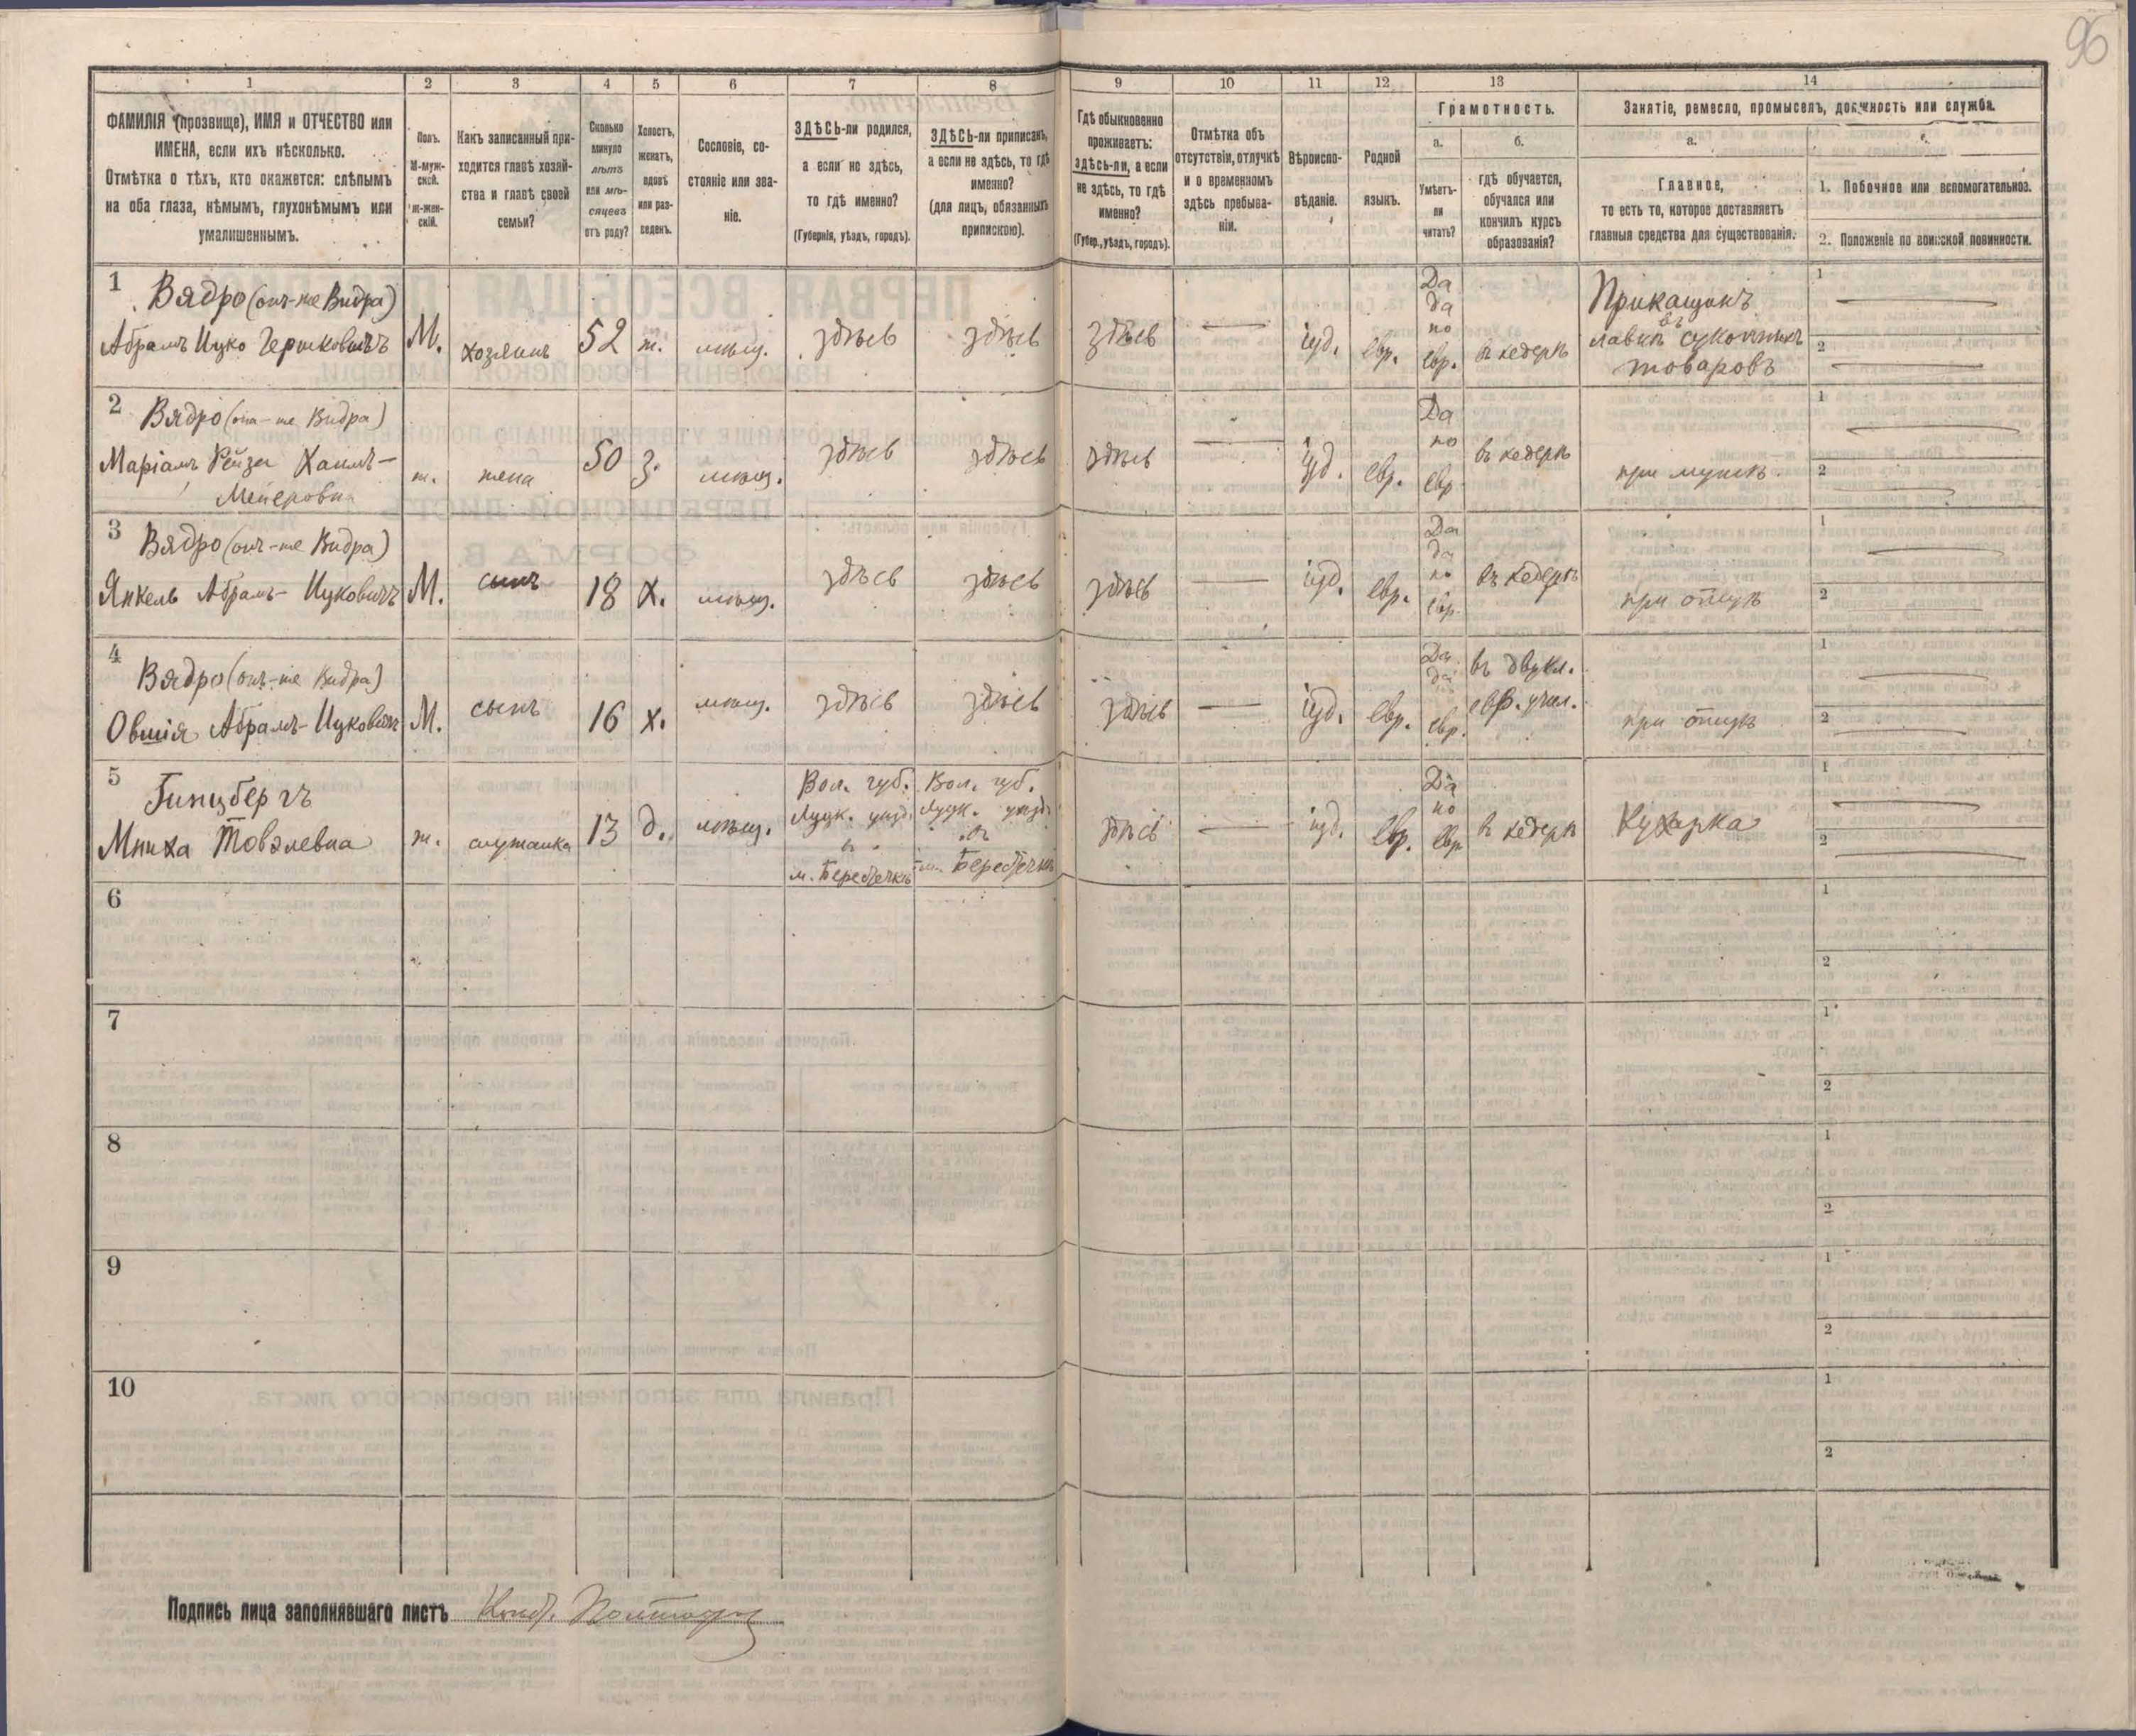 96
1 2 3 4 5 6 7 8 9 10 11 12 13 14
ФАМИЛІЯ (прозвище), ИМЯ и ОТЧЕСТВО или
ИМЕНА, если ихъ нѣсколько.
Отмѣтка о тѣхъ, кто окажется: слѣпымъ
на оба глаза, нѣмымъ, глухонѣмымъ или
умалишеннымъ.
Полъ.
М-муж-
ской.
ж-жен-
скій.
Какъ записанный при-
ходится главѣ хозяй-
ства и главѣ своей
семьи?
Сколько
минуло
лѣтъ
или мѣ-
сяцевъ
отъ роду?
Холостъ,
женатъ,
вдовъ
или раз-
веденъ.
Сословіе, со-
стояніе или зва-
ніе.
ЗДѢСЬ-ли родился,
а если не здѣсь,
то гдѣ именно?
(Губернія, уѣздъ, городъ).
ЗДѢСЬ-ли приписанъ,
а если не здѣсь, то гдѣ
именно?
(для лицъ, обязанныхъ
припискою).
Гдѣ обыкновенно
проживаетъ:
здѣсь-ли, а если
не здѣсь, то гдѣ
именно?
(Губер., уѣздъ, городъ).
Отмѣтка объ
отсутствіи, отлучкѣ
и о временномъ
здѣсь пребыва-
ніи.
Вѣроиспо-
вѣданіе.
Родной
языкъ.
Грамотность.
а.
Умѣетъ-
ли
читать?
б.
гдѣ обучается,
обучался или
кончилъ курсъ
образованія?
Занятіе, ремесло, промыселъ, должность или служба.
а.
Главное,
то есть то, которое доставляетъ
главныя средства для существованія.
1. Побочное или вспомогательное.
2. Положеніе по воинской повинности.
1
Вядро (онъ-же Видра)
Абрамъ Ицко Гершковичъ
М.
хозяинъ
52
ж.
мѣщ.
здѣсь
здѣсь
здѣсь
—
іуд.
евр.
Да
да
по
евр.
въ хедерѣ
Прикащикъ
въ
лавкѣ суконныхъ
товаровъ
1 —
2 —
2
Вядро (она-же Видра)
Маріамъ Рейза Хаимъ-
Мейеровна
ж.
жена
50
з.
мѣщ.
здѣсь
здѣсь
здѣсь
—
іуд.
евр.
Да
по
евр
въ хедерѣ
при мужѣ
1 —
2 —
3
Вядро (онъ-же Видра)
Янкель Абрамъ-Ицковичъ
М.
сынъ
18
х.
мѣщ.
здѣсь
здѣсь
здѣсь
—
іуд.
евр.
Да
да
по
евр.
въ хедерѣ
при отцѣ
1 —
2 —
4
Вядро (онъ-же Видра)
Овшія Абрамъ-Ицковичъ
М.
сынъ
16
х.
мѣщ.
здѣсь
здѣсь
здѣсь
—
іуд.
евр.
Да
да
евр.
въ двукл.
евр. учил.
при отцѣ
1 —
2 —
5
Гинцбергъ
Мниха Товэлевна
ж.
служанка
13
д.
мѣщ.
Вол. губ.
Луцк. уѣзд.
въ
м. Берестечкѣ
Вол. губ.
Луцк. уѣзд.
въ
м. Берестечкѣ
здѣсь
—
іуд.
евр.
Да
по
евр
въ хедерѣ
Кухарка
1 —
2 —
6
1
2
7
1
2
8
1
2
9
1
2
10
1
2
Подпись лица заполнявшаго листъ